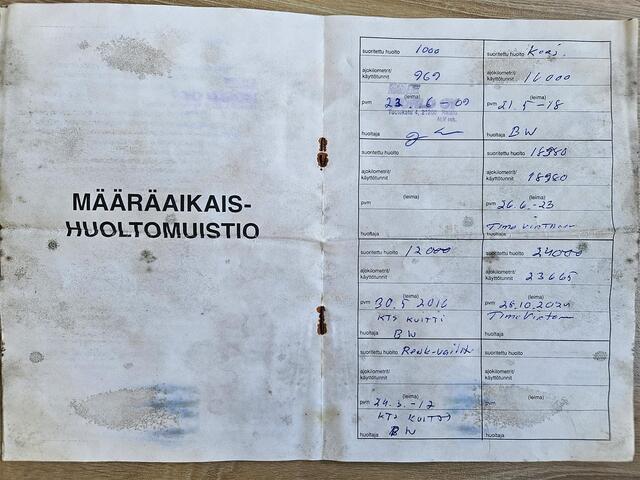 MÄÄRÄAIKAIS-
HUOLTOMUISTIO
suoritettu huolto 1000
ajokilometrit/
käyttötunnit 969
(leima)
pvm 23 6 -09
huoltaja
suoritettu huolto
ajokilometrit/
käyttötunnit
(leima)
pvm
huoltaja
suoritettu huolto 12000
ajokilometrit/
käyttötunnit
(leima)
pvm 30.5 2016
KTS KUITTI
huoltaja BW
suoritettu huolto
ajokilometrit/
käyttötunnit
(leima)
pvm 24.3.-17
KTS KUITTI
huoltaja BW
suoritettu huolto
ajokilometrit/
käyttötunnit 16000
(leima)
pvm 21.5-18
huoltaja BW
suoritettu huolto 18980
ajokilometrit/
käyttötunnit 18980
(leima)
pvm 26.6.-23
huoltaja
suoritettu huolto 24000
ajokilometrit/
käyttötunnit 23665
(leima)
pvm
huoltaja
suoritettu huolto
ajokilometrit/
käyttötunnit
(leima)
pvm
huoltaja